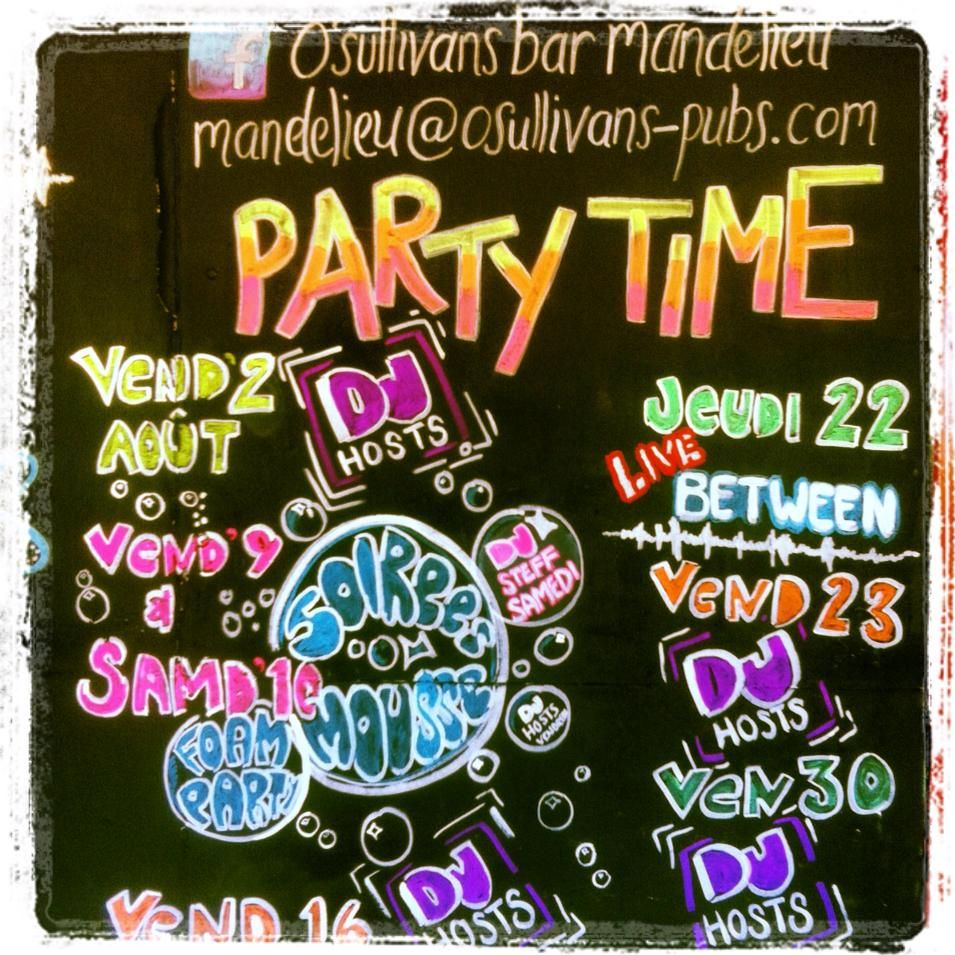 f O'sullivans bar Mandelieu
mandelieu@osullivans-pubs.com
PARTY TIME
VEND'2
AOÛT
DJ
HOSTS
VEND'9
a
SAMD'10
SOIRÉES
MOUSSE
FOAM
PARTY
DJ
STEFF
SAMEDI
DJ
HOSTS
VEND 16
DJ
HOSTS
JEUDI 22
LIVE
BETWEEN
VEND 23
DJ
HOSTS
VEN 30
DJ
HOSTS